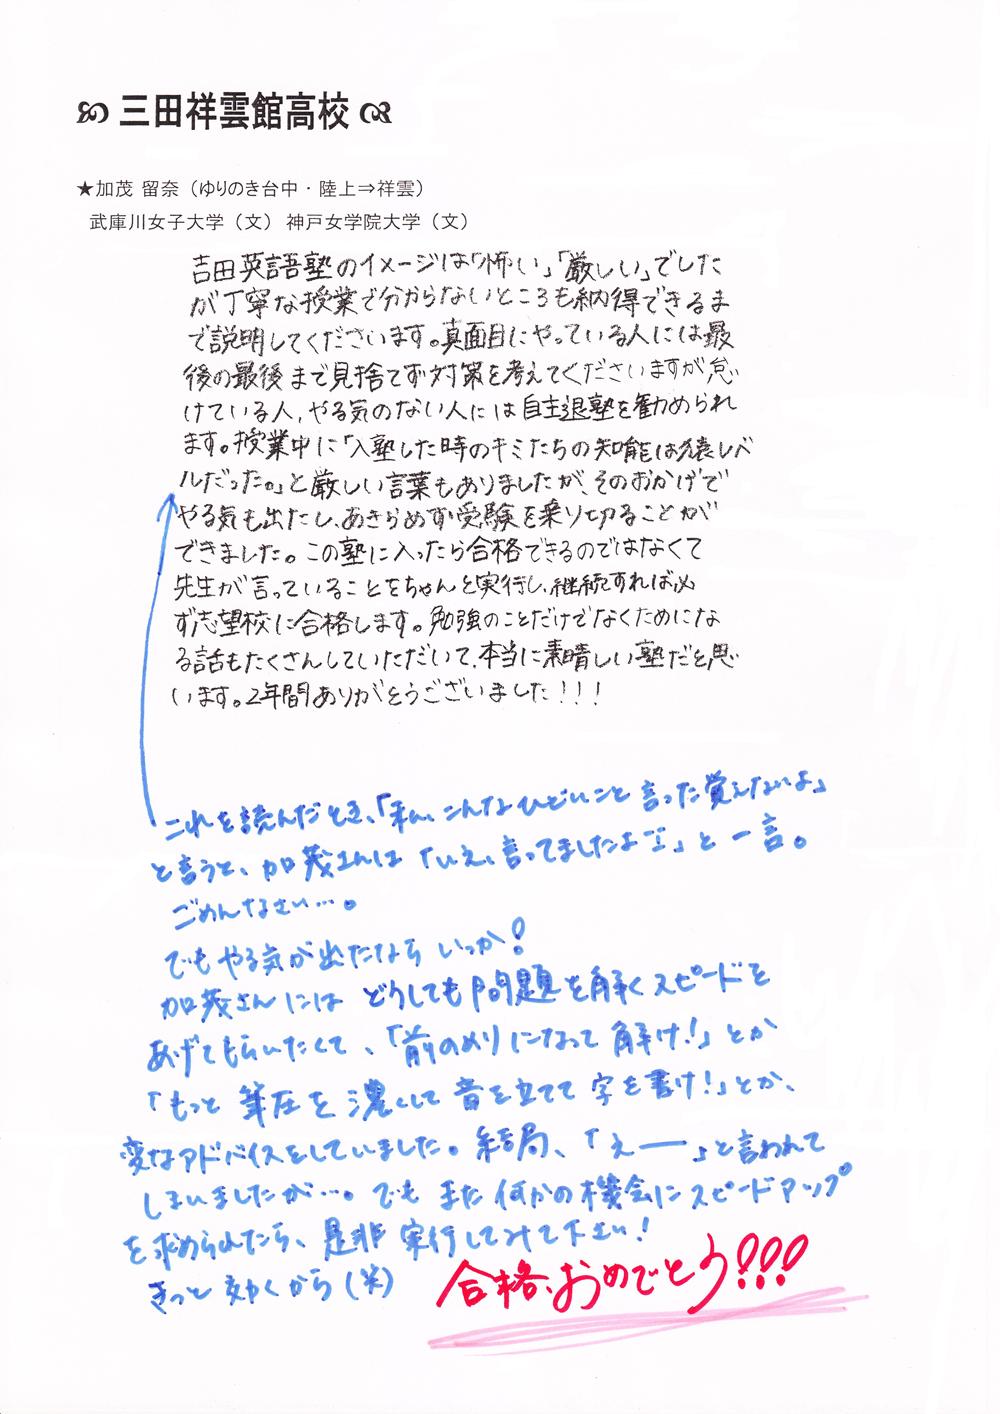 三田祥雲館高校
★加茂 留奈（ゆりのき台中・陸上⇒祥雲）
武庫川女子大学（文） 神戸女学院大学（文）
吉田英語塾のイメージは「怖い」「厳しい」でした
が丁寧な授業で分からないところも納得できるま
で説明してくださいます。真面目にやっている人には最
後の最後まで見捨てず対策を考えてくださいますが怠
けている人、やる気のない人には自主退塾を勧められ
ます。授業中に「入塾した時のキミたちの知能は猿レベ
ルだった。」と厳しい言葉もありましたが、そのおかげで
やる気も出たし、あきらめず受験を乗り切ることが
できました。この塾に入ったら合格できるのではなくて
先生が言っていることをちゃんと実行し、継続すれば必
ず志望校に合格します。勉強のことだけでなくためにな
る話もたくさんしていただいて、本当に素晴しい塾だと思
います。2年間ありがとうございました！！！
これを読んだとき、「私、こんなひどいこと言った覚えないよ」
と言うと、加茂さんは「いえ、言ってましたよー」と一言。
ごめんなさい…。
でもやる気が出たなら いっか！
加茂さんには どうしても問題を解くスピードを
あげてもらいたくて、「前のめりになって解け！」とか
「もっと筆圧を濃くして音を立てて字を書け！」とか、
変なアドバイスをしていました。結局、「えー」と言われて
しまいましたが…。でも また何かの機会にスピードアップ
を求められたら、是非実行してみて下さい！
きっと効くから（笑）
合格、おめでとう!!!